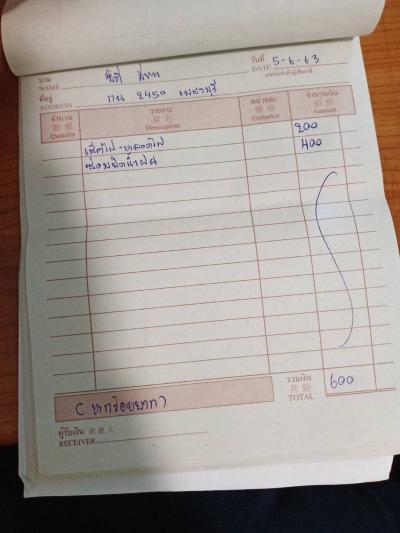 นาม
NAME
วันที่ 5-6-63
DATE
เลขประจำตัวผู้เสียภาษี
ที่อยู่ กน 2450 เพชรบุรี
ADDRESS
จำนวน 數量 Quantity รายการ 品名 Description หน่วยละ 價格 Unitprice จำนวนเงิน 銀額 Amount
200
เช็คไฟ-หลอดไฟ 400
ซ่อมปัดน้ำฝน
รวมเงิน
共銀
TOTAL 600
(หกร้อยบาท)
ผู้รับเงิน 收銀人
RECEIVER